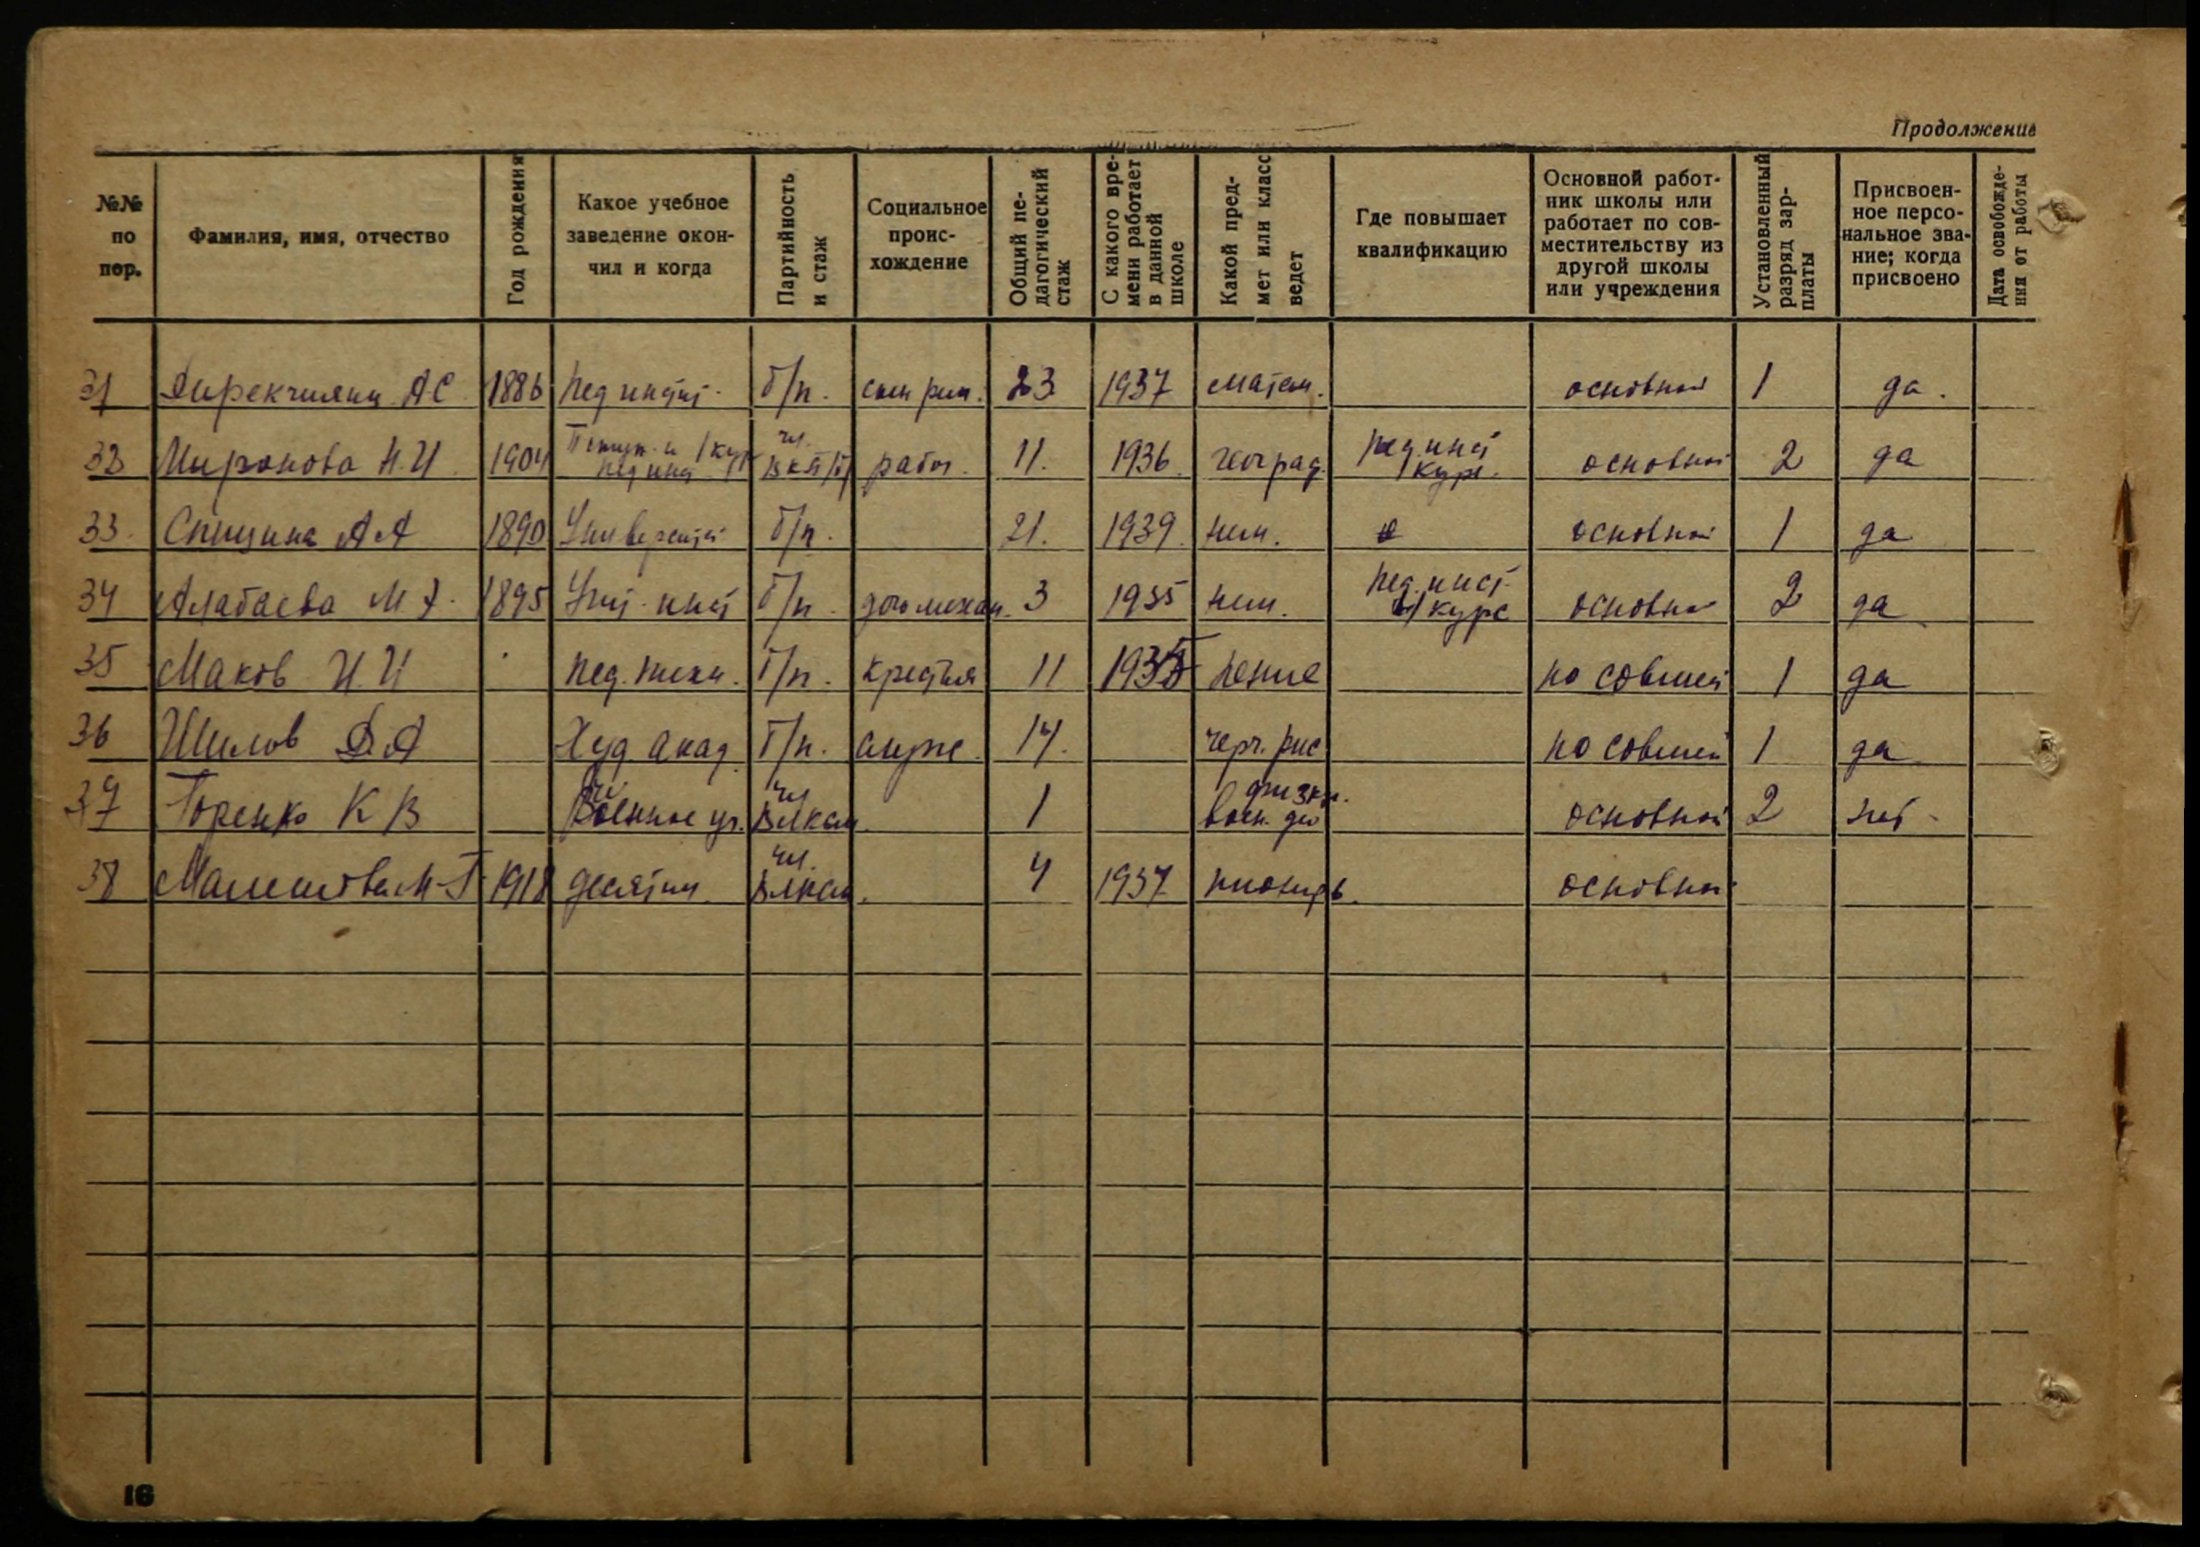 Продолжение
№№ по пор.
Фамилия, имя, отчество
Год рождения
Какое учебное заведение окон-
чил и когда
Партийность и стаж
Социальное проис-
хождение
Общий пе-
дагогический стаж
С какого вре-
мени работает в данной школе
Какой пред-
мет или класс ведет
Где повышает квалификацию
Основной работ-
ник школы или работает по сов-
местительству из другой школы или учреждения
Установленный разряд зар-
платы
Присвоен-
ное персо-
нальное зва-
ние; когда присвоено
Дата освобожде-
ния от работы
31 А С 1886 Пед инст. б/п. 23 1937 матем. основной 1 да.
32 Миронова Н. И. 1904 чл. ВКП/б/ рабоч. 11. 1936 географ. Пед. инст 1 курс. основной 2 да
33. Спицина А А 1890 Университет б/п. 21. 1939. нем. основной 1 да
34 Алабаева М 1895 Учит. инст б/п. 3 1935 нем. Пед. инст. курс основной 2 да
35 Маков И. И пед. техн. б/п. крестьян 11 пение по совмест 1 да
36 Шилов Д. А Худ акад б/п. служ. 14. черч. рис по совмест 1 да
37 К В Военное уч. чл ВЛКСМ. 1 физк. воен. дело основной 2 нет
38 1918 десятил. чл. ВЛКСМ. 4 1937 пионерв. основной
16